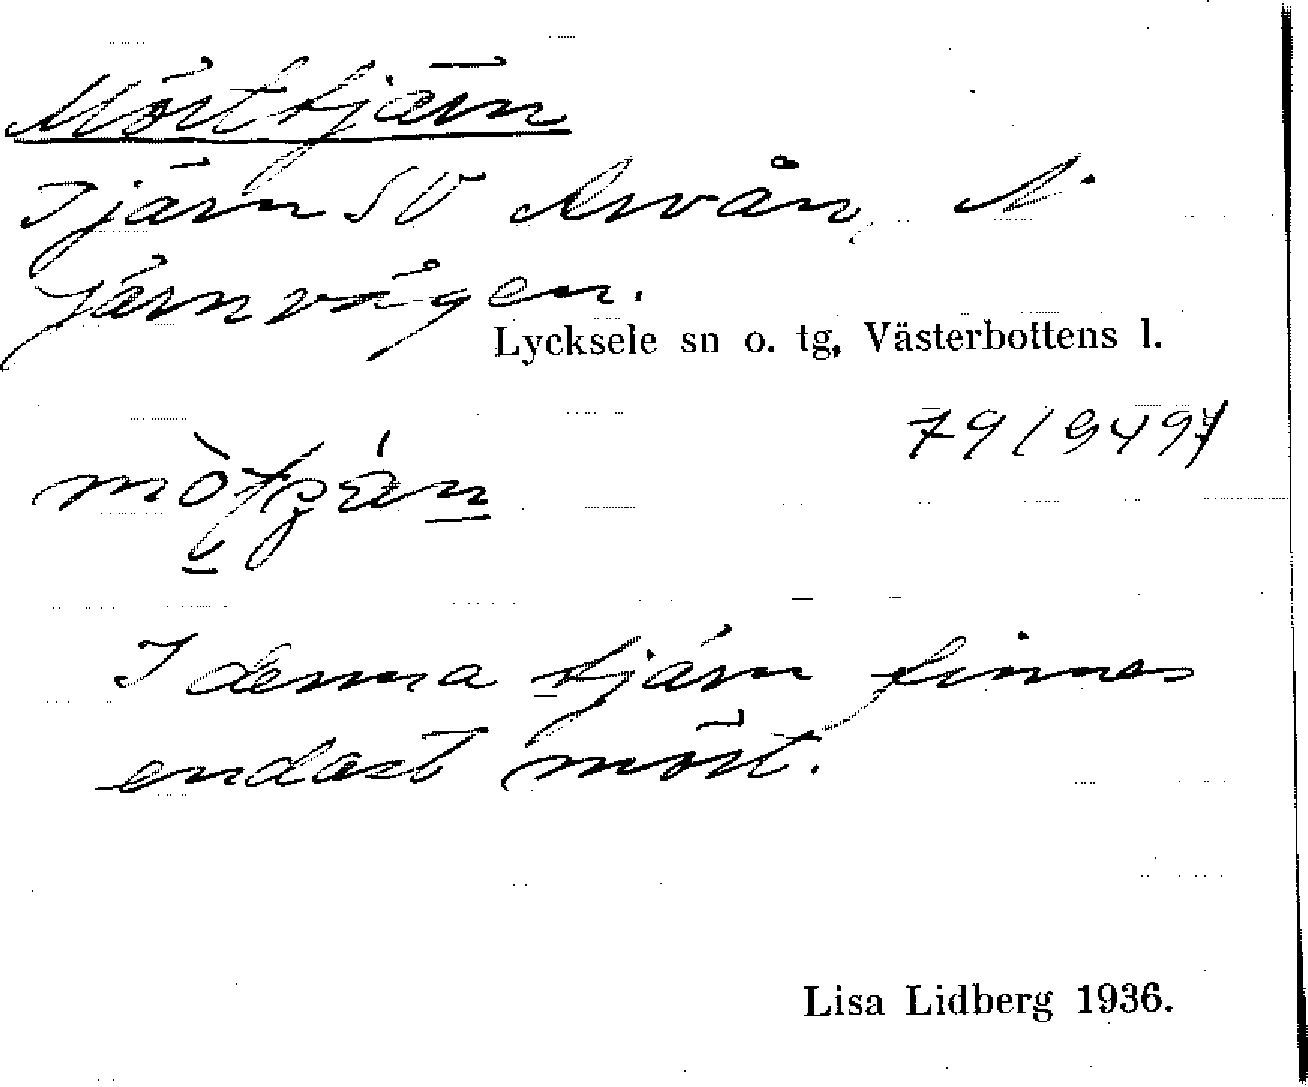 Mörttjärn
Tjärn SV Arvån, N.
järnvägen.
Lycksele sn o. tg, Västerbottens l.
79/9497
I denna tjärn finnes
endast mört.
Lisa Lidberg 1936.